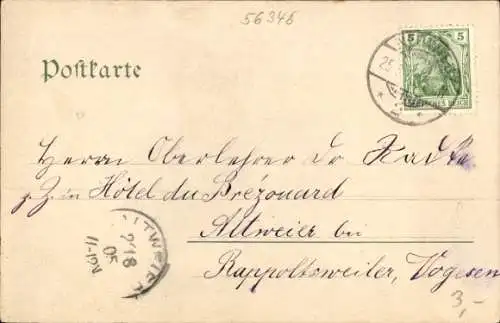 56346
Postkarte
5 5
25
Herrn Oberlehrer Dr Radtke
z. Z. in Hôtel du Brézouard
Altweier bei
Rappoltsweiler, Vogesen
ALTWEIER
7 8
05
11-12N
3,-